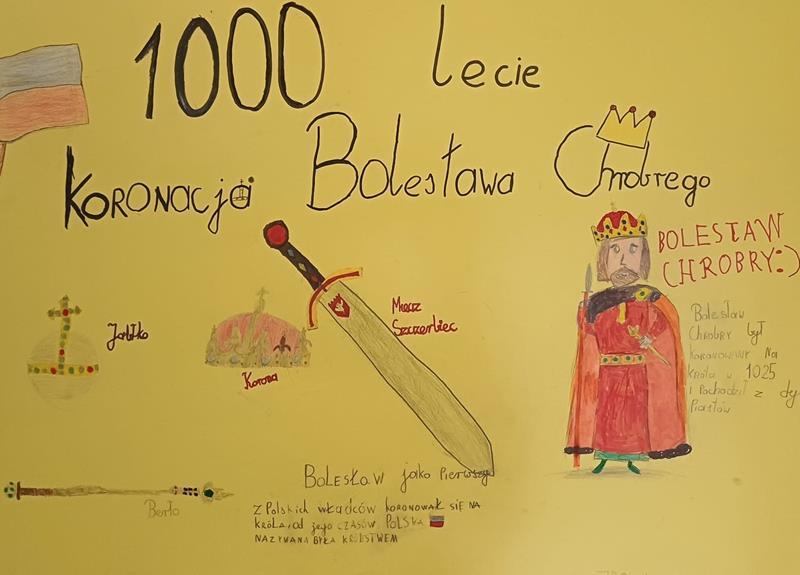 1000 lecie
Koronacja Bolesława Chrobrego
BOLESŁAW
CHROBRY:)
Jabłko
Korona
Miecz
Szczerbiec
Bolesław
Chrobry był
koronowany na
króla w 1025
i Pochodził z dy
Piastów
Berło
BOLESŁAW jako Pierwszy
Z Polskich władców koronował się na
króla, od jego czasów Polska
nazywana była królstwem